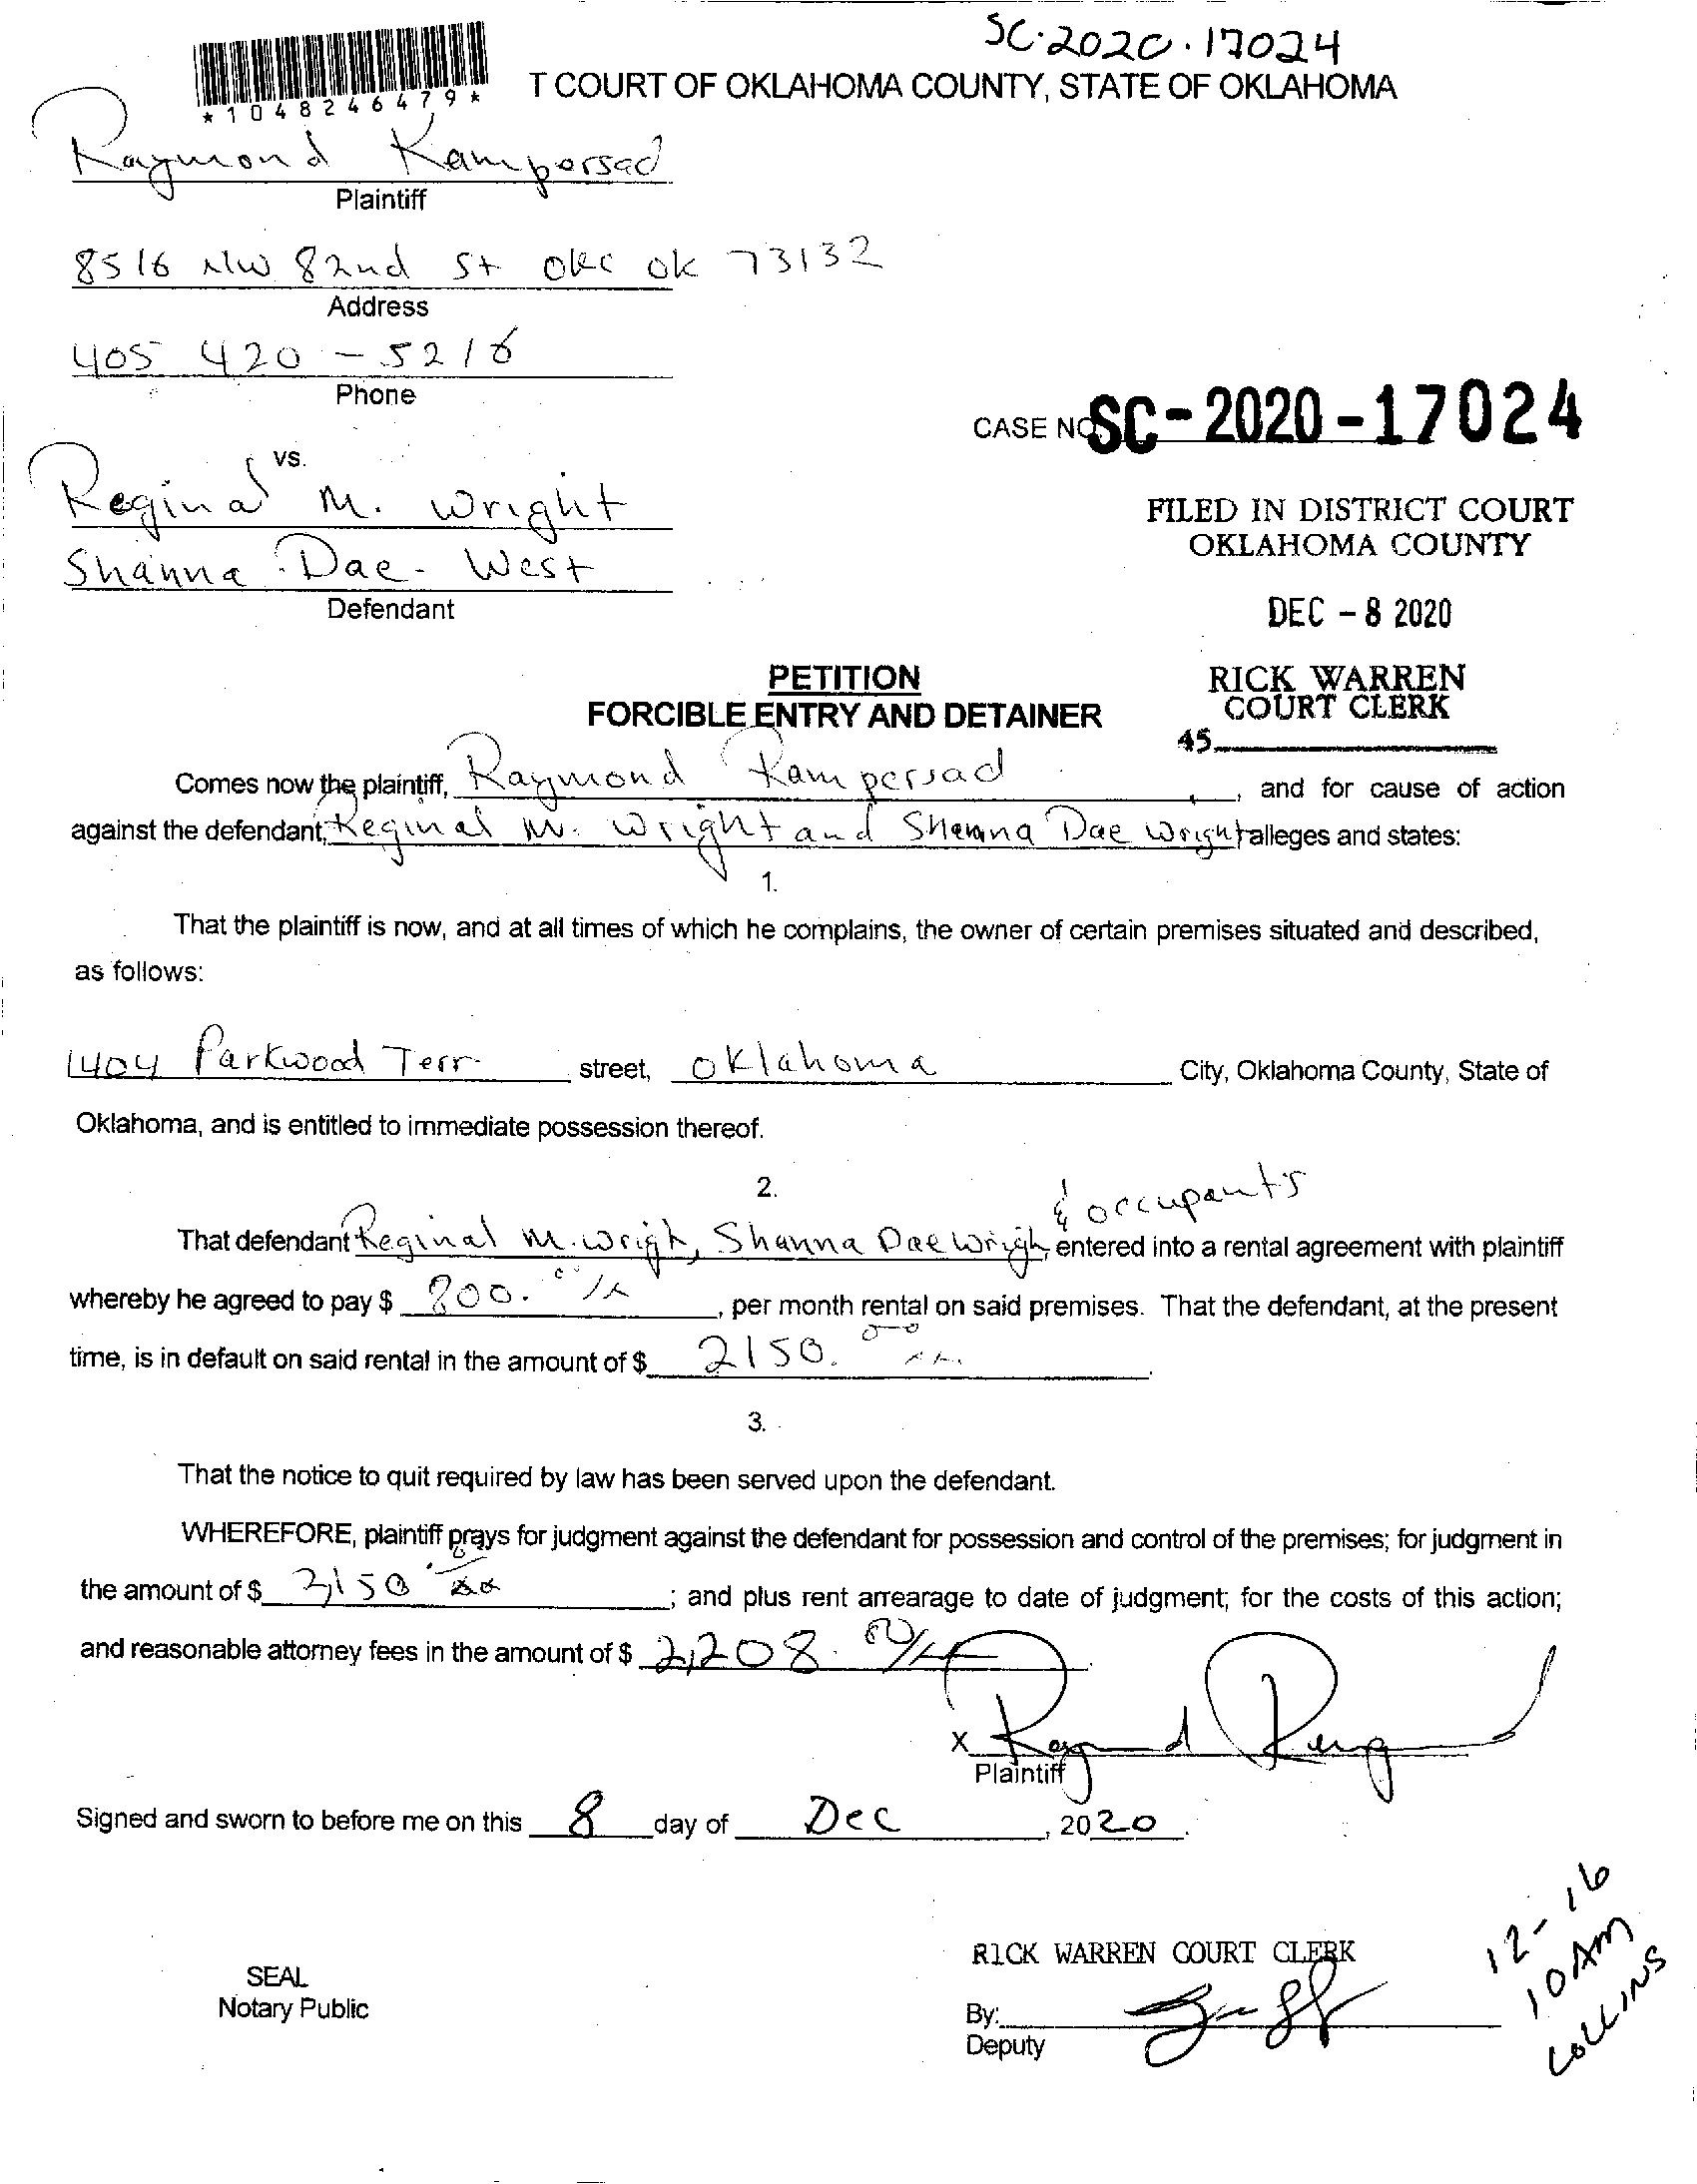 SC-2020-17024
*1048246479*
T COURT OF OKLAHOMA COUNTY, STATE OF OKLAHOMA
Raymond Rampersad
Plaintiff
8516 NW 82nd St OKC OK 73132
Address
405 420-5216
Phone
CASE NO SC-2020-17024
vs.
Reginal M. Wright
Shanna Dae West
Defendant
FILED IN DISTRICT COURT
OKLAHOMA COUNTY
DEC - 8 2020
RICK WARREN
COURT CLERK
45
PETITION
FORCIBLE ENTRY AND DETAINER
Comes now the plaintiff, Raymond Rampersad, and for cause of action
against the defendant, Reginal M. Wright and Shanna Dae Wright alleges and states:
1.
That the plaintiff is now, and at all times of which he complains, the owner of certain premises situated and described,
as follows:
1404 Parkwood Terr street, Oklahoma City, Oklahoma County, State of
Oklahoma, and is entitled to immediate possession thereof.
2.
& occupants
That defendant Reginal M. Wrigh, Shanna Dae Wrigh, entered into a rental agreement with plaintiff
whereby he agreed to pay $ 800.00, per month rental on said premises. That the defendant, at the present
time, is in default on said rental in the amount of $ 2150.00.
3.
That the notice to quit required by law has been served upon the defendant.
WHEREFORE, plaintiff prays for judgment against the defendant for possession and control of the premises; for judgment in
the amount of $ 2,150; and plus rent arrearage to date of judgment; for the costs of this action;
and reasonable attorney fees in the amount of $ 2,208.
X
Plaintiff
Signed and sworn to before me on this 8 day of Dec, 2020.
SEAL
Notary Public
RICK WARREN COURT CLERK
By:
Deputy
12-16
10 AM
COLLINS